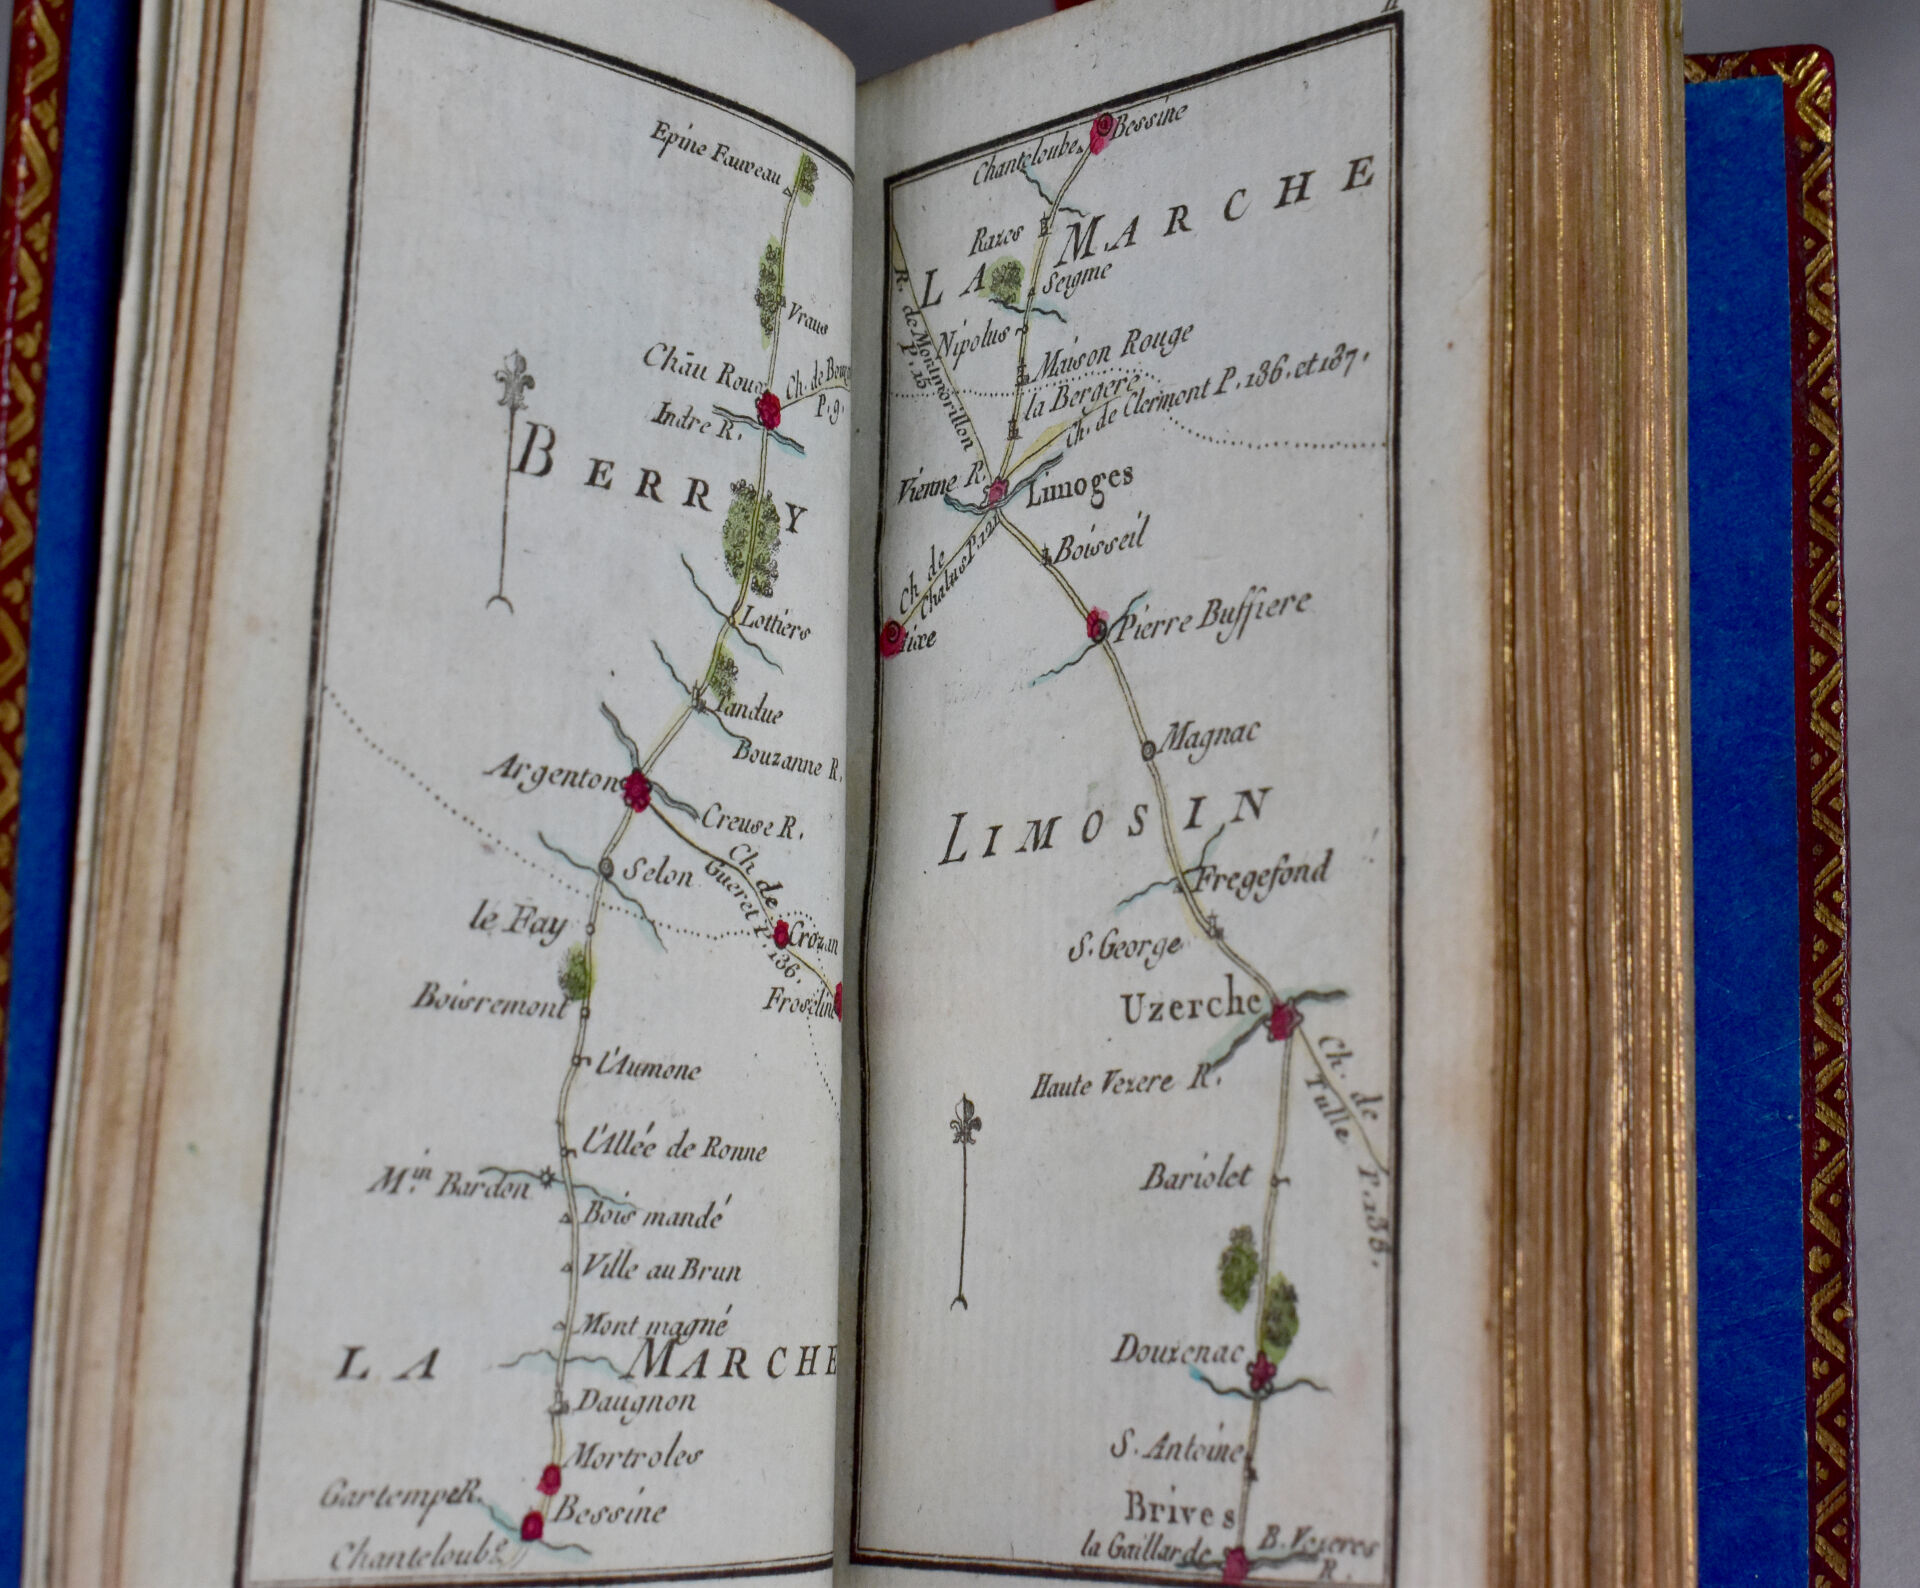 Epine Fauveau
Vraus
Châu Roug
Ch. de Bourg
P. 9.
Indre R.
BERRY
Lottiers
Tandue
Bouzanne R.
Argenton
Creuse R.
Selon
Ch. de
Gueret P. 136.
le Fay
Crozan
Boisremont
Froseline
l'Aumone
l'Allée de Ronne
M.in Barden
Bois mandé
Ville au Brun
Mont magné
LA MARCHE
Daugnon
Mortroles
Gartempe R.
Bessine
Chanteloube
11
Bessine
Chanteloube
Razes
LA MARCHE
Seigme
R. de Montmorillon
P. 15
Nipolus
Maison Rouge
la Bergere
Ch. de Clermont P. 136. et 137.
Vienne R.
Limoges
Boisseil
Ch. de
Chalus P. 121
Aixe
Pierre Buffiere
Magnac
LIMOSIN
Fregefond
S. George
Uzerche
Haute Vezere R.
Ch. de
Tulle P. 138.
Bariolet
Douzenac
S. Antoine
Brives
la Gaillarde
B. Vezeres
R.